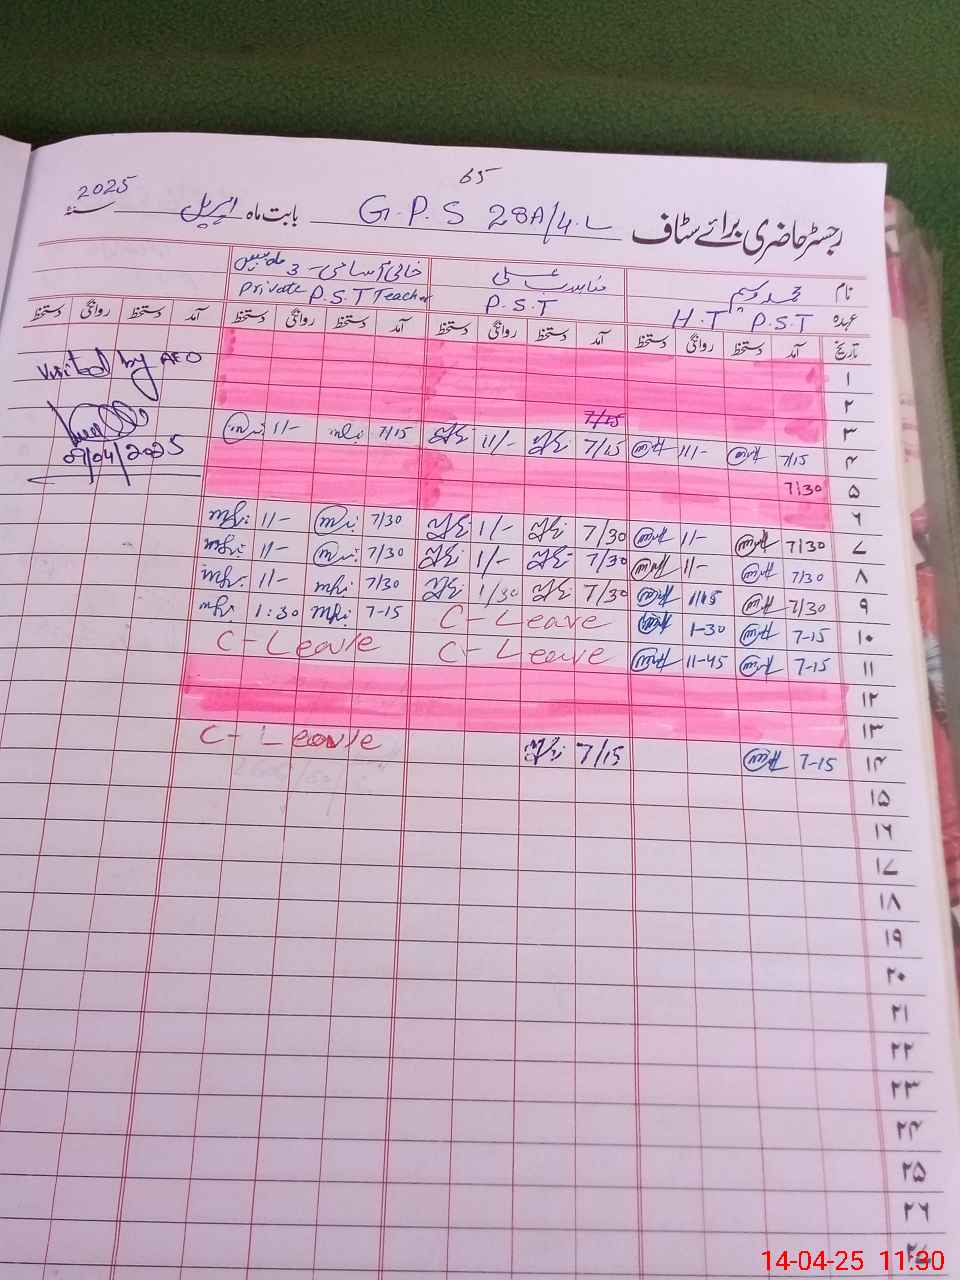 65
رجسٹر حاضری برائے سٹاف G.P.S 28A/4.L بابت ماہ اپریل سنہ 2025
نام محمد وسیم خالی آسامی - 3
عہدہ H.T P.S.T P.S.T Private P.S.T Teacher
تاریخ آمد دستخط روانگی دستخط آمد دستخط روانگی دستخط آمد دستخط روانگی دستخط آمد دستخط روانگی دستخط
۱
Visited by AEO
۲
7/15
۳
۴ 7/15 11/- 7/15 11/- 7/15 11/-
09/04/2025
۵ 7/30
۶
۷ 7/30 11/- 7/30 1/- 7/30 11/-
۸ 7/30 11/- 7/30 1/- 7/30 11/-
۹ 7/30 1/15 7/30 1/30 7/30 11/-
۱۰ 7-15 1-30 C-Leave 7-15 1:30
۱۱ 7-15 11-45 C-Leave C-Leave
۱۲
۱۳
۱۴ 7-15 7/15 C-Leave
۱۵
۱۶
۱۷
۱۸
۱۹
۲۰
۲۱
۲۲
۲۳
۲۴
۲۵
۲۶
۲۷
14-04-25 11:30